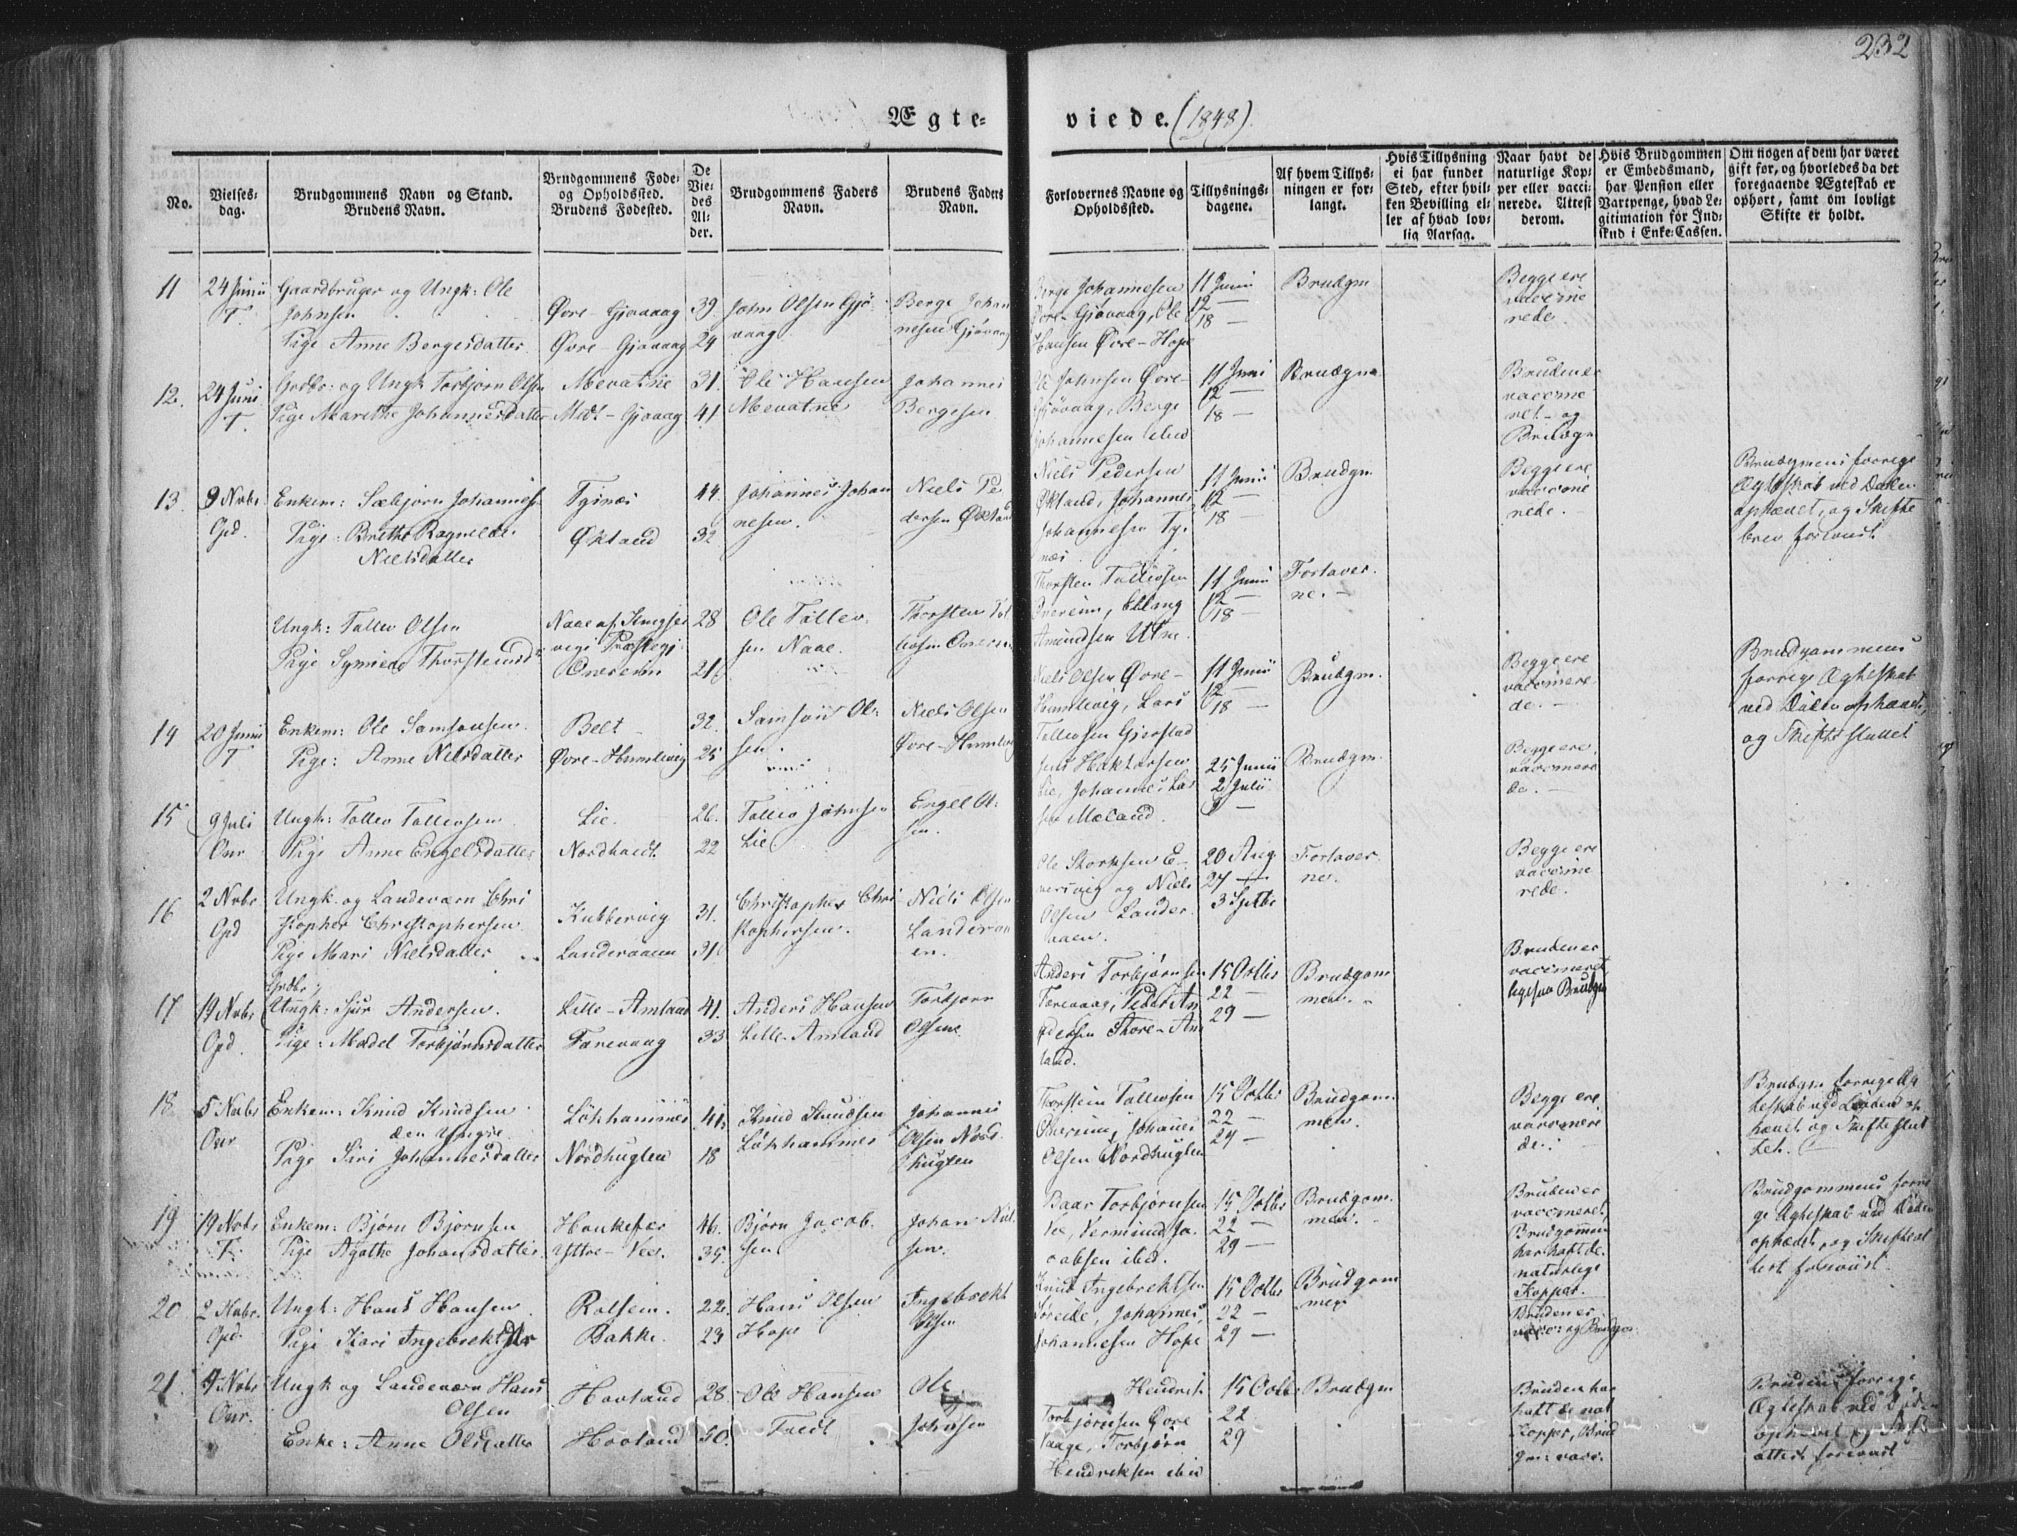 232
Ægteviede. (1848)
No.
Vielsesdag.
Brudgommens Navn og Stand.
Brudens Navn.
Brudgommens Føde-
og Opholdssted.
Brudens Fødested.
De
Vie-
des
Al-
der.
Brudgommens Faders
Navn.
Brudens Faders
Navn.
Forlovernes Navne og
Opholdssted.
Tillysnings-
dagene.
Af hvem Tillys-
ningen er for-
langt.
Hvis Tillysning
ei har fundet
Sted, efter hvil-
ken Bevilling el-
ler af hvad lov-
lig Aarsag.
Naar havt de
naturlige Kop-
per eller vacci-
nerede. Attest
derom.
Hvis Brudgommen
er Embedsmand,
har Pension eller
Vartpenge, hvad Le-
gitimation for Ind-
skud i Enke-Cassen.
Om nogen af dem har været
gift før, og hvorledes da det
foregaaende Ægteskab er
ophørt, samt om lovligt
Skifte er holdt.
11
24 Juni
T.
Gaardbruger og Ungk: Ole
Johnsen
Pige Anne Bergesdatter
Øvre-Gjøvaag
Øvre-Gjøvaag
39
24
John Olsen Gjø-
vaag
Berge Johan
nesen Gjøvaag
Berge Johannesen
Øvre-Gjøvaag, Ole
Hansen Øvre-Hope
11 Juni
12 —
18 —
Brudgm
Begge ere
vaccine
rede
12.
24 Juni
T.
Grdbr: og Ungk Torbjørn Olsen
Pige Marethe Johannesdatter
Mevatne
Midt-Gjøvaag
31.
41
Ole Hansen
Mevatne
Johannes
Bergesen
Ole Johnsen Øvre-
Gjøvaag, Berge
Johannesen ibid
11 Juni
12 —
18 —
Brudgm
Bruden er
vaccine
ret og
Brudgm
13
9 Nvbr
Gpd.
Enkem: Sæbjørn Johannes
Pige: Brithe Ragnilde
Nielsdatter
Tysnæs
Økland
44
32
Johannes Johan
nesen.
Niels Pe
dersen Økland
Niels Pedersen
Økland, Johannes
Johannesen Ty-
næs
11 Juni
12 —
18
Brudgm.
Begge ere
vaccine
rede.
Brudgmens forrige
Ægteskab ved Døden
ophævet, og Skifte
brev forevist
Ungk: Tollev Olsen
Pige Synneve Thorsteinsd
28
21
Ole Tollev
sen Naae.
Thorsten Tol
levsen
Thorsten Tollevsen
11 Juni
12 —
18 —
Forlover
ne.
14
20 Juni
T
Enkem: Ole Samsonsen
Pige: Anne Nielsdatter
Belt
Øvre-Humlevig
32.
25
Samson Ol-
sen.
Niels Olsen
Øvre-Humlevig
Niels Olsen Øvre-
Humlevig, Lars
Tollevsen Gjerstad
11 Juni
12 —
18 —
Brudgm.
Begge ere
vaccinere
de.
Brudgommens
forrige Ægteskab
ved Døden ophævet,
og Skifte sluttet
15
9 Juli
Onr
Ungk: Tollev Tollevsen
Pige Anne Engelsdatter
Lie.
26.
22
Tollev Johnsen
Lie
Engel Ol-
sen.
Johannes Lar
sen Mæland.
25 Juni
2 Julii
9 —
Brudgm.
Begge ere
vaccinere
de.
16
2 Nvbr
Gpd
Ungk. og Landeværn Chri
stopher Christophersen
Pige Mari Nielsdatter
Kubbervig
Landervaaen
31.
31
Christopher Chri
stophersen.
Niels Olsen
Landerva
en.
Ole Storksen E-
versvig og Niels
Olsen Lander
vaaen.
20 Aug.
27 —
3 Septbr
Forlover
ne.
Begge ere
vaccine
rede.
17
19 Nvbr
Gpd.
Grdbr
Ungk: Sjur Andersen.
Pige: Madel Torbjørnsdatter
Lille-Amland
Farevaag
41.
33
Anders Hansen
Lille-Amland
Torbjørn
Olsen
Anders Torbjørnsen
Farevaag, Peder An
dersen Store-Am
land.
15 Octbr
22 —
29 —
Brudgom
men.
Bruden er
vaccineret
ligesaa Brudgm
18
5 Nvbr
Onr
Enkem: Knud Knudsen
den Yngre.
Pige Siri Johannesdatter
Løkhammer
Nordhuglen
41.
18
Knud Knudsen
Løkhammer
Johannes
Olsen Nord
huglen
Thorstein Tollevsen
Johannes
Olsen Nordhuglen
15 Octbr
22 —
29 —
Brudgom
men.
Begge ere
vaccinere
de.
Brudgm forrige Æg
teskab ved Døden op
hævet og Skifte slut
tet.
19
19 Nvbr
T.
Enkem: Bjørn Bjørnsen
Pige Agathe Johansdatter
Yttre-Nees.
46.
35.
Bjørn Jacob-
sen
Johan Niel
sen.
Baar Torbjørnsen
Vermund Ja-
cobsen ibid.
15 Octbr
22 —
29 —
Brudgom-
men.
Bruden er
vaccineret.
Brudgommen
har havt de
naturlige
Kopper.
Brudgommens forri
ge Ægteskab ved Døden
ophævet, og Skifteat
test forevist.
20
2 Nvbr.
Gpd.
Ungk: Hans Hansen
Pige Kari Ingebrektsdtr
Rolsem.
Bakke.
22.
23
Hans Olsen
Hope
Ingebrekt
Olsen
Knud Ingebrektsen
Sørede, Johannes
Johannesen Hope
15 Octbr
22 —
29 —
Brudgom
men
Bruden er
vacc: og Brudgm
21.
9 Nvbr
Onr.
Ungk og Landeværn Hans
Olsen
Enke: Anne Olsdatter
Hovland
Hovland
28.
50.
Ole Hansen
Tvedt
Ole
Johnsen
Hendrik
Torbjørnsen Øvre
Vaage, Torbjørn
Hendriksen ibid
15 Octbr
22
29
Brudgm
Bruden har
havt de nat
Kopper, Brud
gm: vacc.
Brudens forrige
Ægteskab ved Døden
ophævet og Skifte
attest forevist